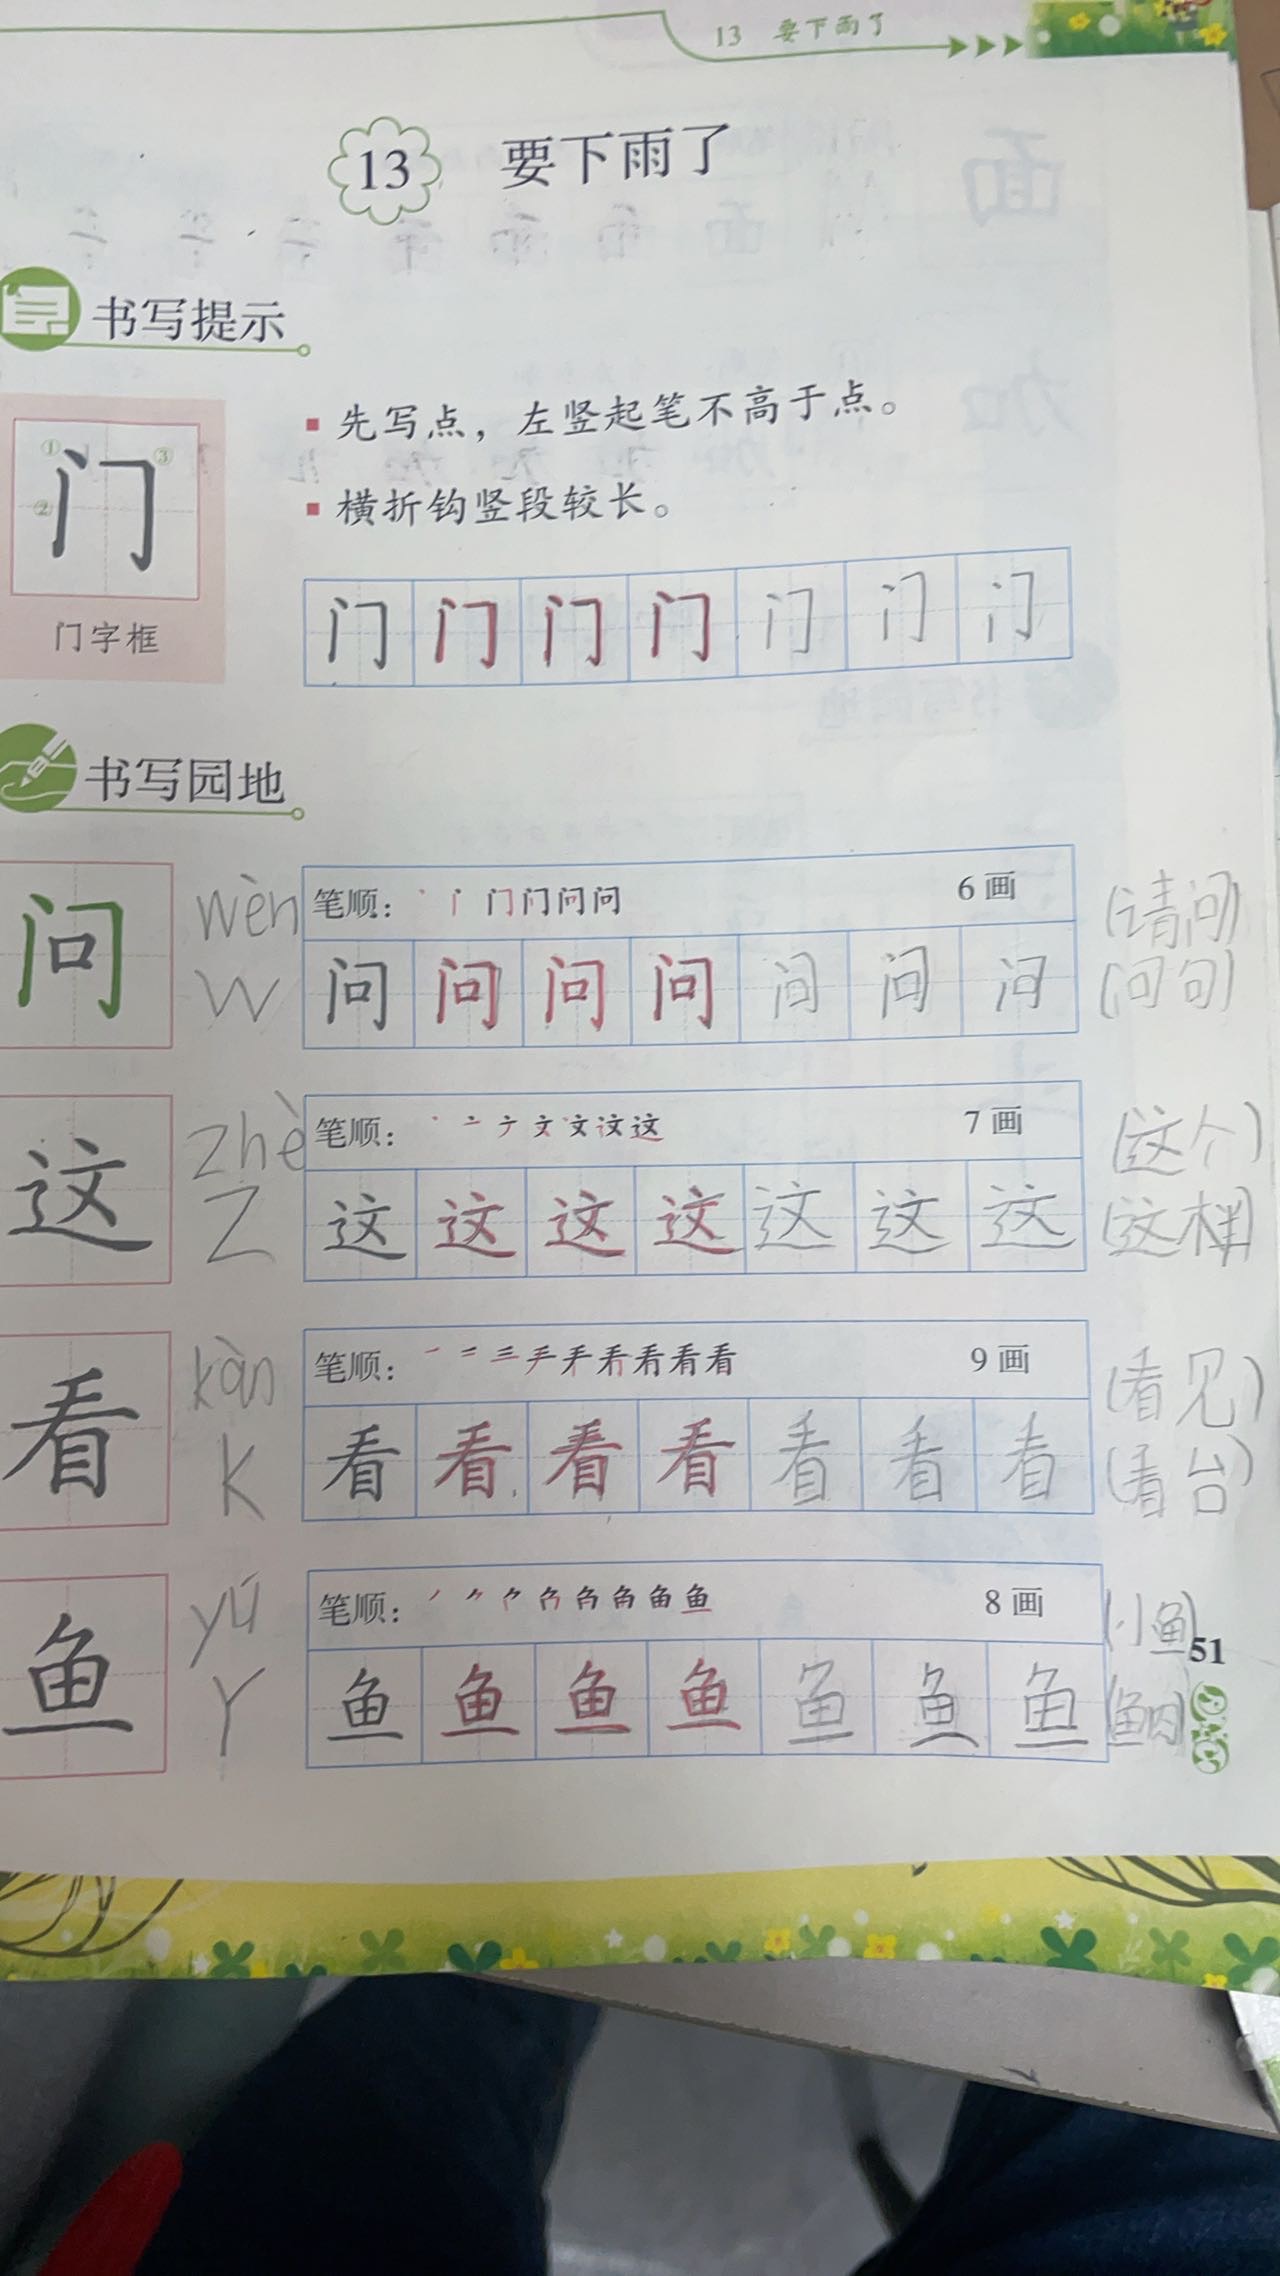 13 要下雨了
13 要下雨了
书写提示
① ② ③ 门
门字框
先写点，左竖起笔不高于点。
横折钩竖段较长。
门 门 门 门 门 门 门
书写园地
问 wèn W
笔顺： 丶 门 门 问 问 6画
问 问 问 问 问 问 问
(请问)
(问句)
这 zhè Z
笔顺： 丶 亠 文 文 这 7画
这 这 这 这 这 这 这
(这个)
(这样)
看 kàn K
笔顺： 一 二 三 手 看 看 看 9画
看 看 看 看 看 看 看
(看见)
(看台)
鱼 yú Y
笔顺： 丿 ⺈ 鱼 8画
鱼 鱼 鱼 鱼 鱼 鱼 鱼
(小鱼)
(鱼肉)
51